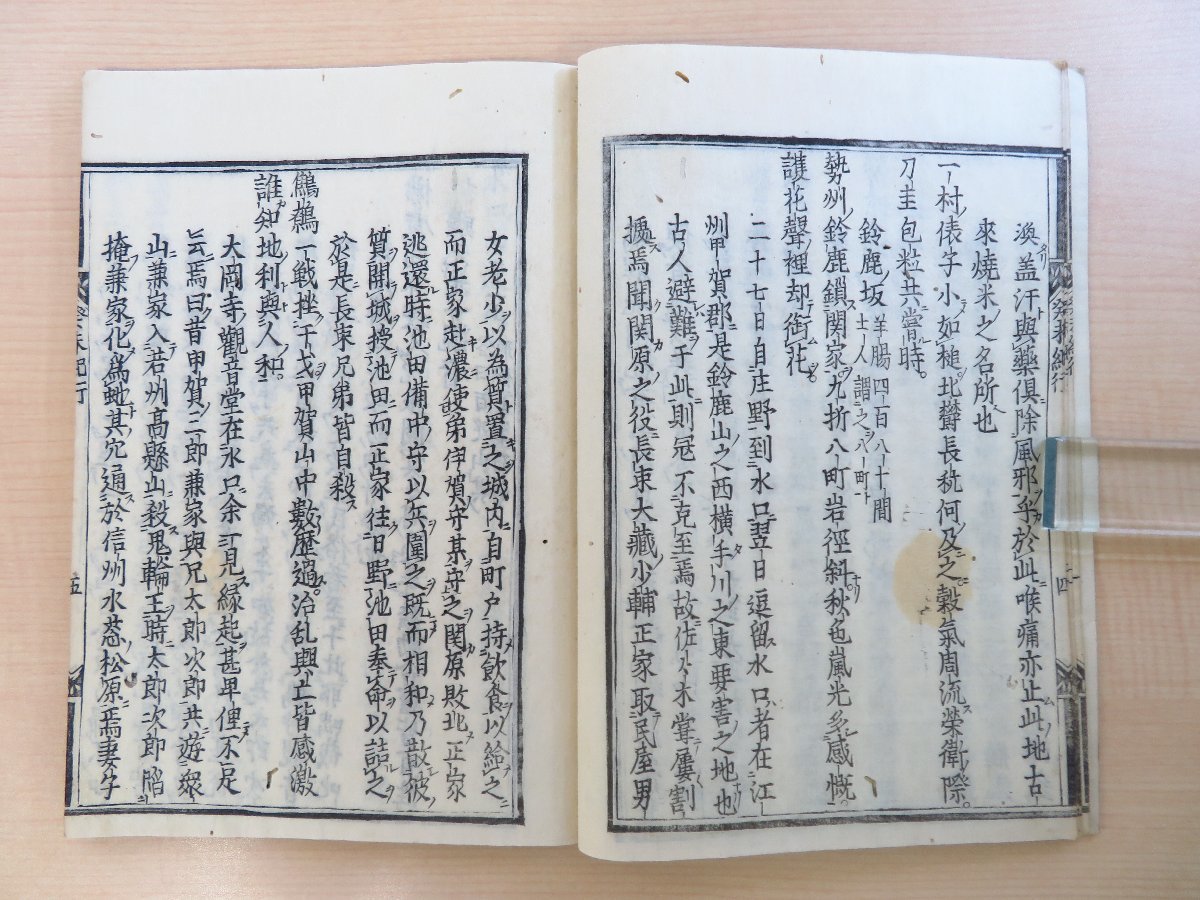 渙益汗與藥俱除風邪乎於此喉痛亦止此地古
來燒米之名所也
一村俵字小如槌北欝長秔何及之穀氣周流榮衛際
刀圭包粒共嘗時
鈴鹿坂 羊腸四百八十間
土人謂之八町
勢州鈴鹿鎖関家九折八町岩徑斜秋色嵐光多感慨
護花聲裡却衙花
二十七日自庄野到水口翌日逗留水口者在江
州甲賀郡是鈴鹿山之西橫手川之東要害之地也
古人避難于此則冠不克至焉故佐々木掌屢割
援焉聞関原之役長束大藏少輔正家取民屋男
癸未紀行
四
女老少以為質置之城内自町戸持飲食以給之
而正家赴濃使弟伊賀守某守之関原敗北正家
逃還時池田備中守以兵圍之既而相和乃散彼
質開城披池田而正家往日野池田奉命以詰之
於是長束兄弟皆自殺
鷸鷸一戦挫干戈甲賀山中數歴過治乱興亡皆感激
誰知地利與人和
大岡寺觀音堂在水口余一見緣起甚卑俚不足
云焉曰昔甲賀三郎兼家與兄太郎次郎共遊眾
山兼家入若州高懸山殺鬼輪王時太郎次郎陷
掩兼家化為虵其穴通於信州水忩松原焉妻子
癸未紀行
五